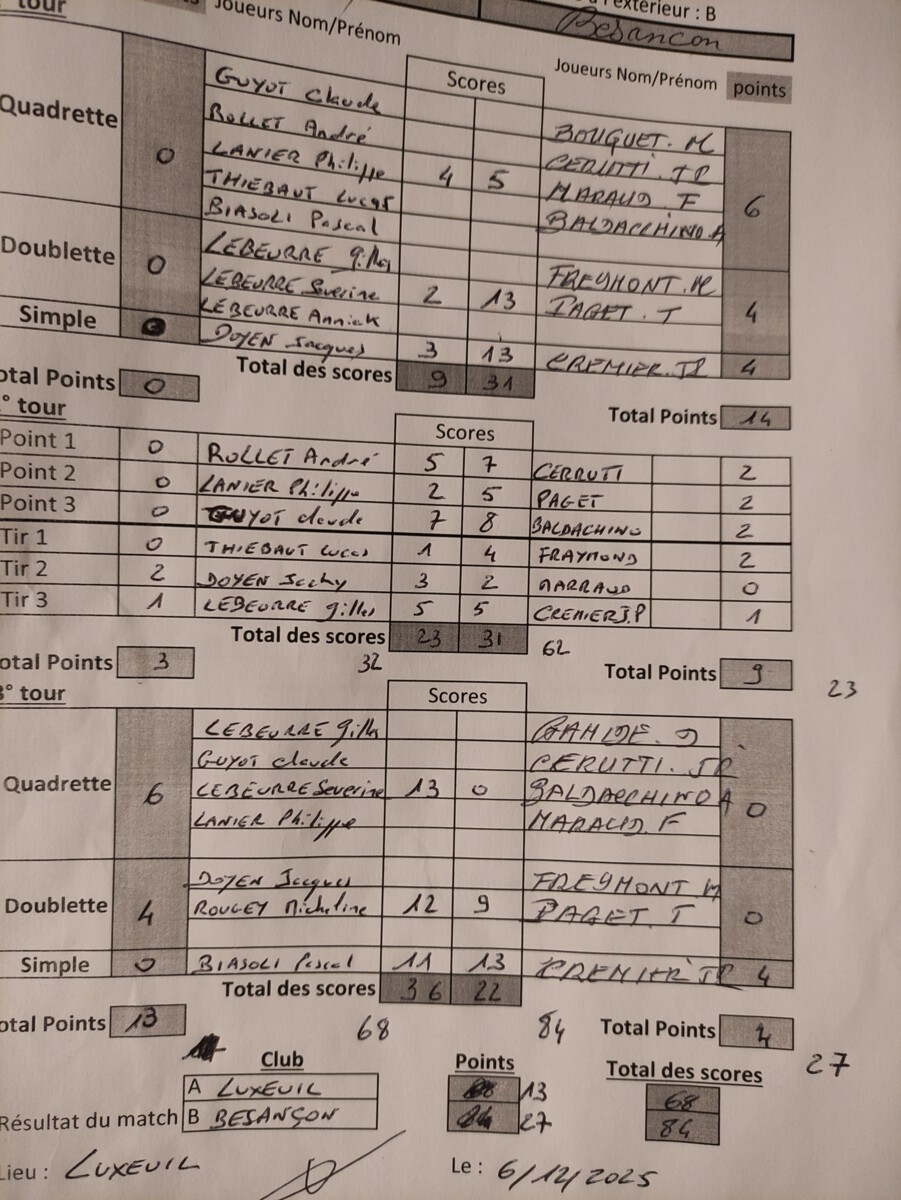 tour Joueurs Nom/Prénom l'extérieur : B
Besancon
Scores Joueurs Nom/Prénom points
Quadrette 0 6
GUYOT Claude
ROLLET André BOUGUET. M
LANIER Philippe 4 5 CERUTTI. JP
THIEBAUT Lucas MARAUD. F
BIASOLI Pascal BALDACCHINO A
Doublette 0 4
LEBEURRE gilles
LEBEURRE Severine 2 13 FREYMONT. M
LEBEURRE Annick PAGET. T
Simple DOYEN Jacques 3 13 CREMIER. JP 4
Total des scores 9 31
otal Points 0 Total Points 14
° tour Scores
Point 1 0 ROLLET André 5 7 CERRUTI 2
Point 2 0 LANIER Philippe 2 5 PAGET 2
Point 3 0 GUYOT claude 7 8 BALDACHINO 2
Tir 1 0 THIEBAUT Lucas 1 4 FRAYMOND 2
Tir 2 2 DOYEN Jacky 3 2 MARRAUD 0
Tir 3 1 LEBEURRE gilles 5 5 CREMIER J.P 1
Total des scores 23 31
32 62
otal Points 3 Total Points 9
23
3° tour Scores
Quadrette 6 0
LEBEURRE Gilles
GUYOT claude CERUTTI. JP
LEBEURRE Severine 13 0 BALDACCHINO A
LANIER Philippe MARAUD. F
Doublette 4 0
DOYEN Jacques FREYMONT M
ROUGEY Micheline 12 9 PAGET. T
Simple 0 BIASOLI Pascal 11 13 CREMIER JP 4
Total des scores 36 22
otal Points 13 68 84 Total Points 4
27
Club Points Total des scores
A LUXEUIL 13 68
Résultat du match B BESANÇON 27 84
Lieu : LUXEUIL Le : 6/12/2025